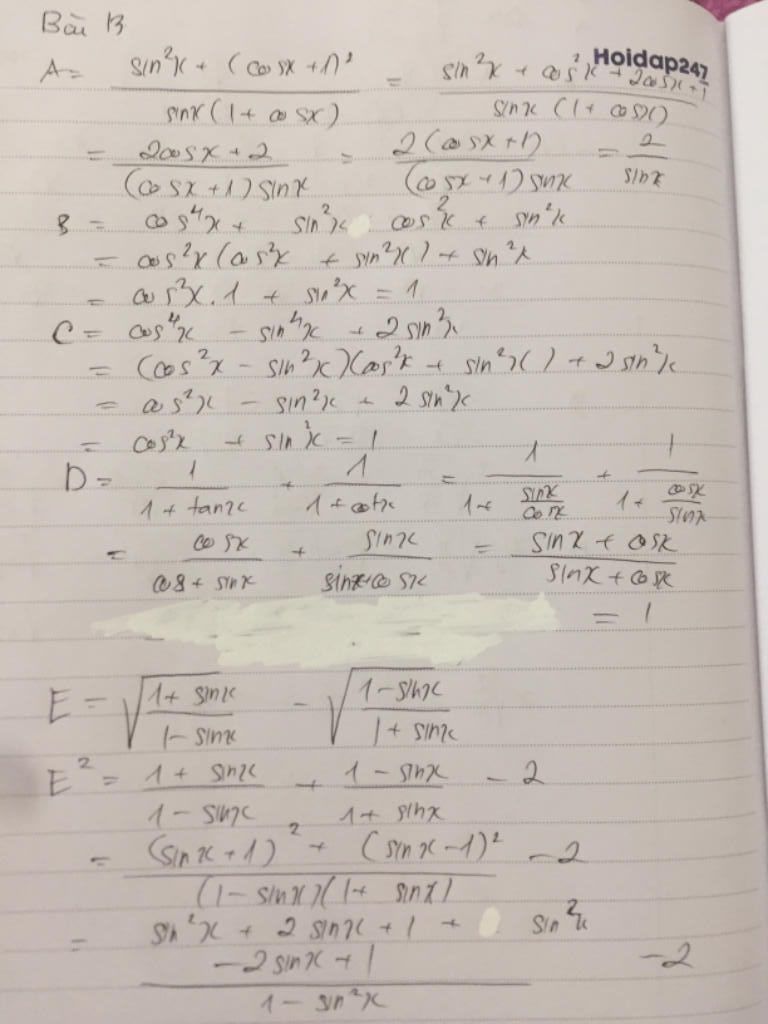 Bài 13
A = \frac{sin²x + (cosx+1)²}{sinx(1+cosx)} = \frac{sin²x + cos²x + 2cosx+1}{sinx (1+cosx)}
Hoidap247
= \frac{2cosx+2}{(cosx+1)sinx} = \frac{2(cosx+1)}{(cosx+1)sinx} = \frac{2}{sinx}
B = cos⁴x + sin²x cos²x + sin²x
= cos²x(cos²x + sin²x) + sin²x
= cos²x.1 + sin²x = 1
C = cos⁴x - sin⁴x + 2sin²x
= (cos²x - sin²x)(cos²x + sin²x) + 2sin²x
= cos²x - sin²x + 2sin²x
= cos²x + sin²x = 1
D = \frac{1}{1+tanx} + \frac{1}{1+cotx} = \frac{1}{1+\frac{sinx}{cosx}} + \frac{1}{1+\frac{cosx}{sinx}}
= \frac{cosx}{cos+sinx} + \frac{sinx}{sinx+cosx} = \frac{sinx+cosx}{sinx+cosx}
= 1
E = \sqrt{\frac{1+sinx}{1-sinx}} - \sqrt{\frac{1-sinx}{1+sinx}}
E² = \frac{1+sinx}{1-sinx} + \frac{1-sinx}{1+sinx} - 2
= \frac{(sinx+1)² + (sinx-1)²}{(1-sinx)(1+sinx)} - 2
= \frac{sin²x + 2sinx+1 + sin²x -2sinx+1}{1-sin²x} - 2